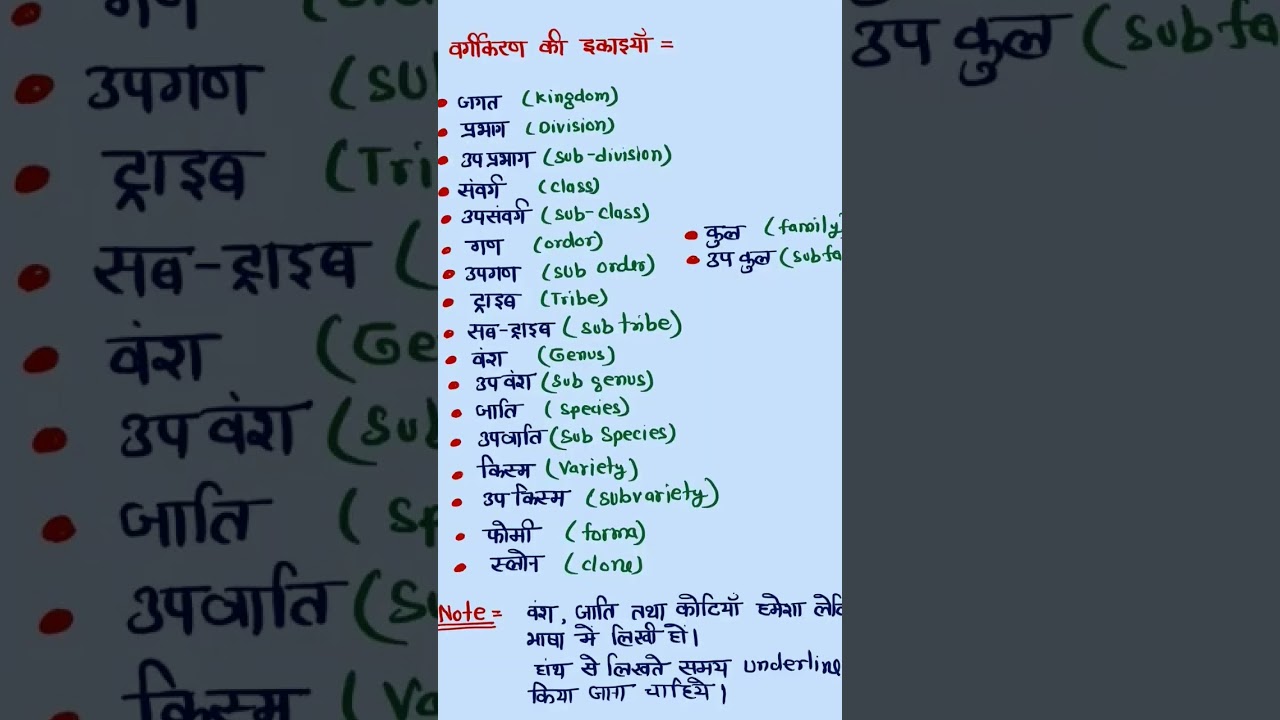 वर्गीकरण की इकाइयाँ =
• जगत (Kingdom)
• प्रभाग (Division)
• उप प्रभाग (Sub-division)
• संवर्ग (class)
• उपसंवर्ग (sub-class)
• गण (ordor)
• उपगण (sub order)
• ट्राइब (Tribe)
• सब-ट्राइब (sub tribe)
• वंश (Genus)
• उप वंश (sub genus)
• जाति (species)
• उपजाति (Sub Species)
• किस्म (variety)
• उप किस्म (subvariety)
• फोर्मा (forma)
• क्लोन (clone)
• कुल (family)
• उप कुल (subfa
Note = वंश, जाति तथा कोटियाँ हमेशा लेटि
भाषा में लिखी हो।
हाथ से लिखते समय underline
किया जाना चाहिये।
गण
• उपगण (su
• ट्राइब (Tri
• सब-ट्राइब (
• वंश (Ge
• उप वंश (su
• जाति (sp
• उपजाति (su
• किस्म (va
उप कुल (subfa